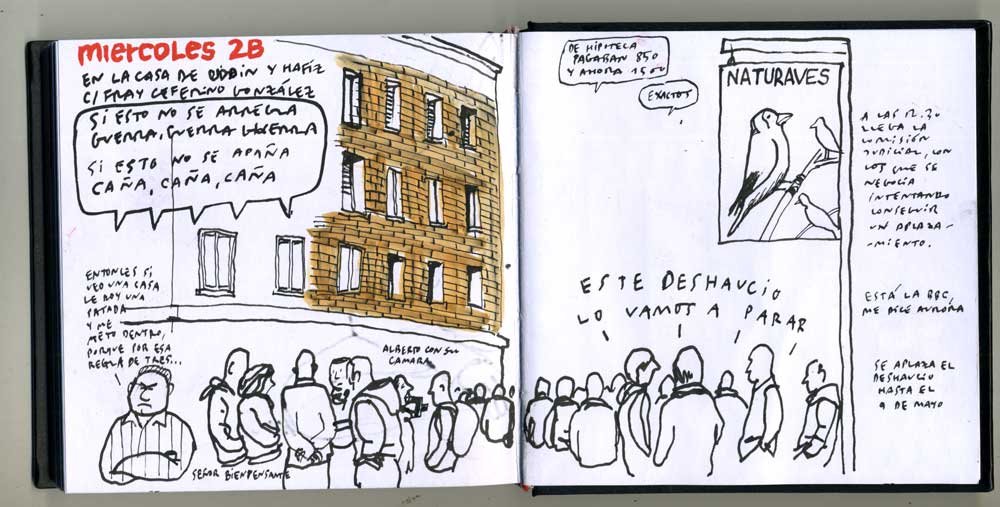 miercoles 28
EN LA CASA DE ROBIN Y HAFIZ
C/ FRAY CEFERINO GONZÁLEZ
SI ESTO NO SE ARREGLA
GUERRA, GUERRA GUERRA
SI ESTO NO SE APAÑA
CAÑA, CAÑA, CAÑA
ENTONCES SI
VEO UNA CASA
LE DOY UNA
PATADA
Y ME
METO DENTRO,
PORQUE POR ESA
REGLA DE TRES...
SEÑOR BIENPENSANTE
ALBERTO CON SU
CAMARA
DE HIPOTECA
PAGABAN 850
Y AHORA 1500
EXACTOS
NATURAVES
ESTE DESHAUCIO
LO VAMOS A PARAR
A LAS 12.30
LLEGA LA
COMISIÓN
JUDICIAL, CON
LOS QUE SE
NEGOCIA
INTENTANDO
CONSEGUIR
UN APLAZA-
-MIENTO.
ESTÁ LA BBC,
ME DICE AURORA
SE APLAZA EL
DESHAUCIO
HASTA EL
9 DE MAYO